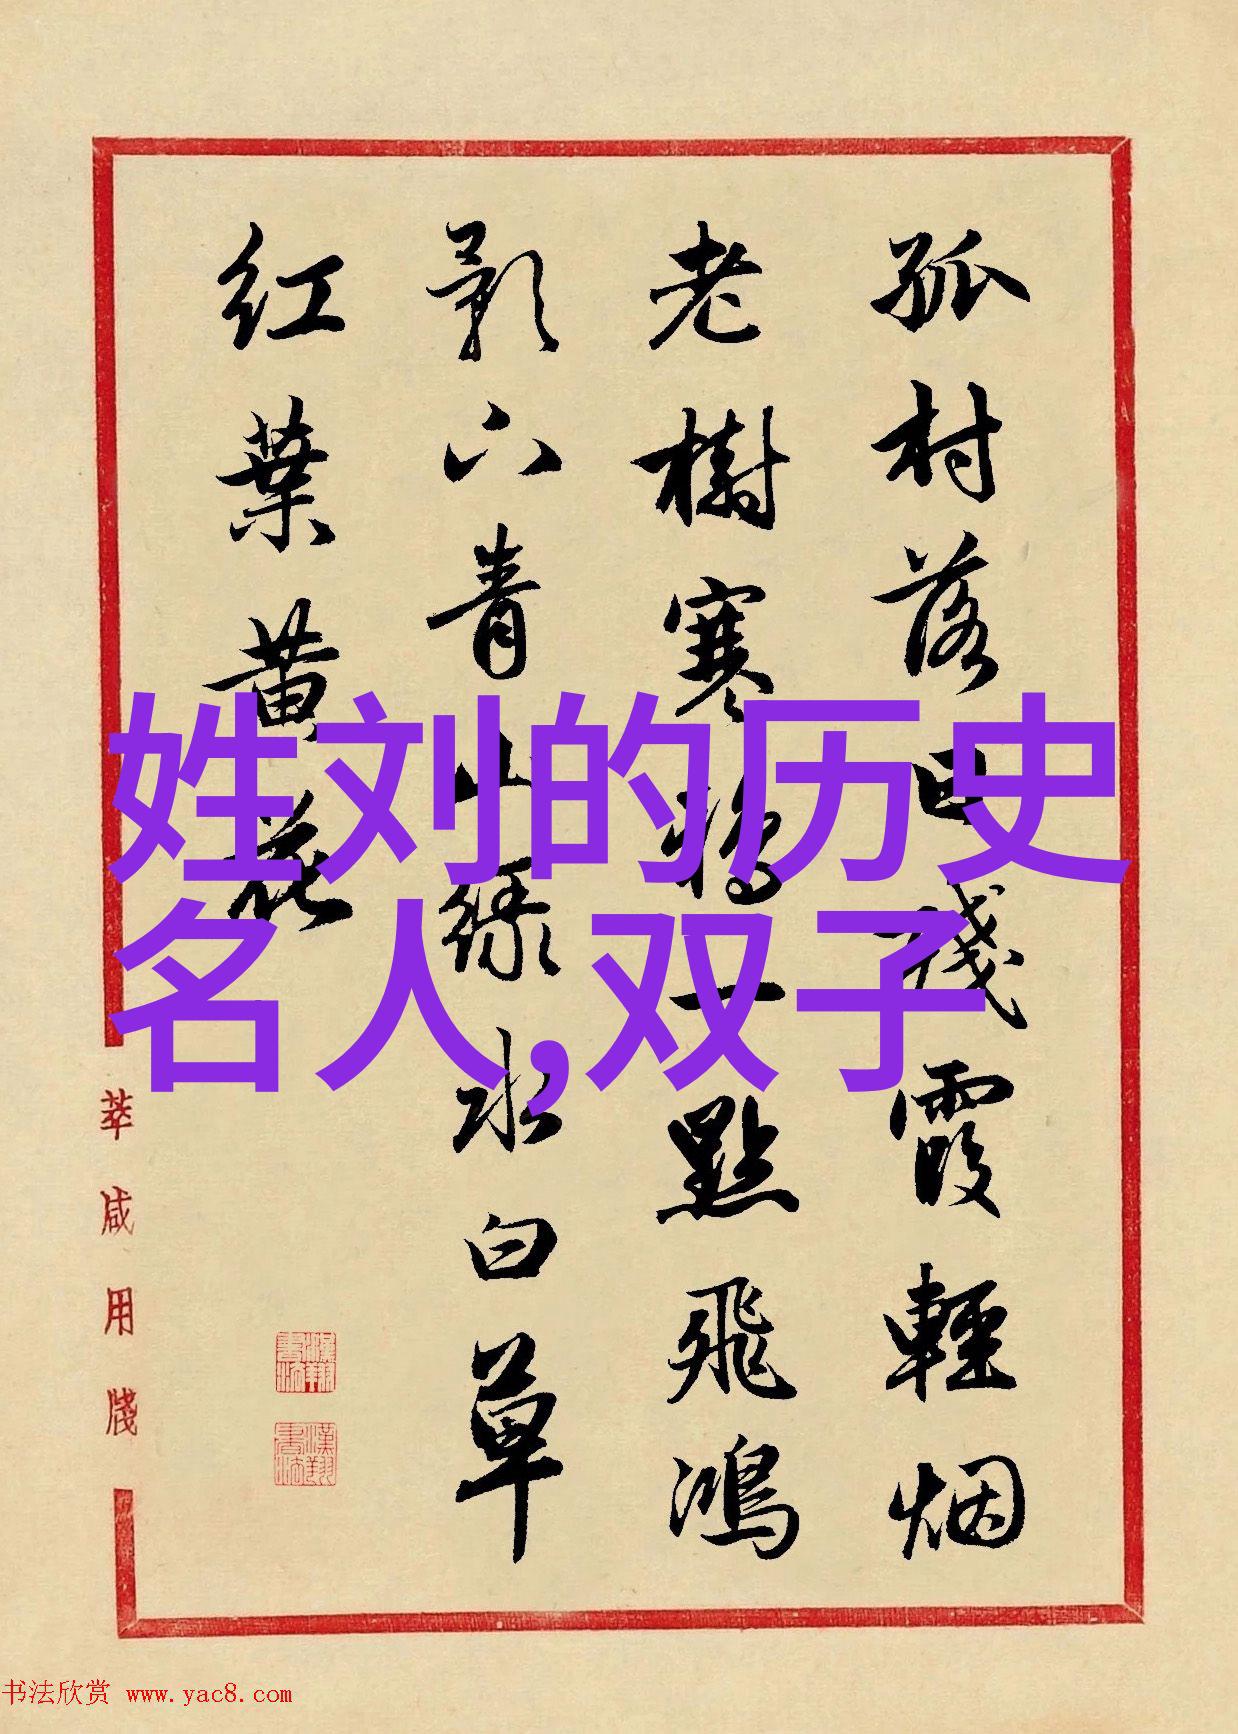 孤村落日残霞輕烟
老樹寒鴉一點飛鴻
影下青山緑水白草
红葉黄花
姓刘的历史
名人,双子
萃咸用牋
书法欣赏 www.yac8.com